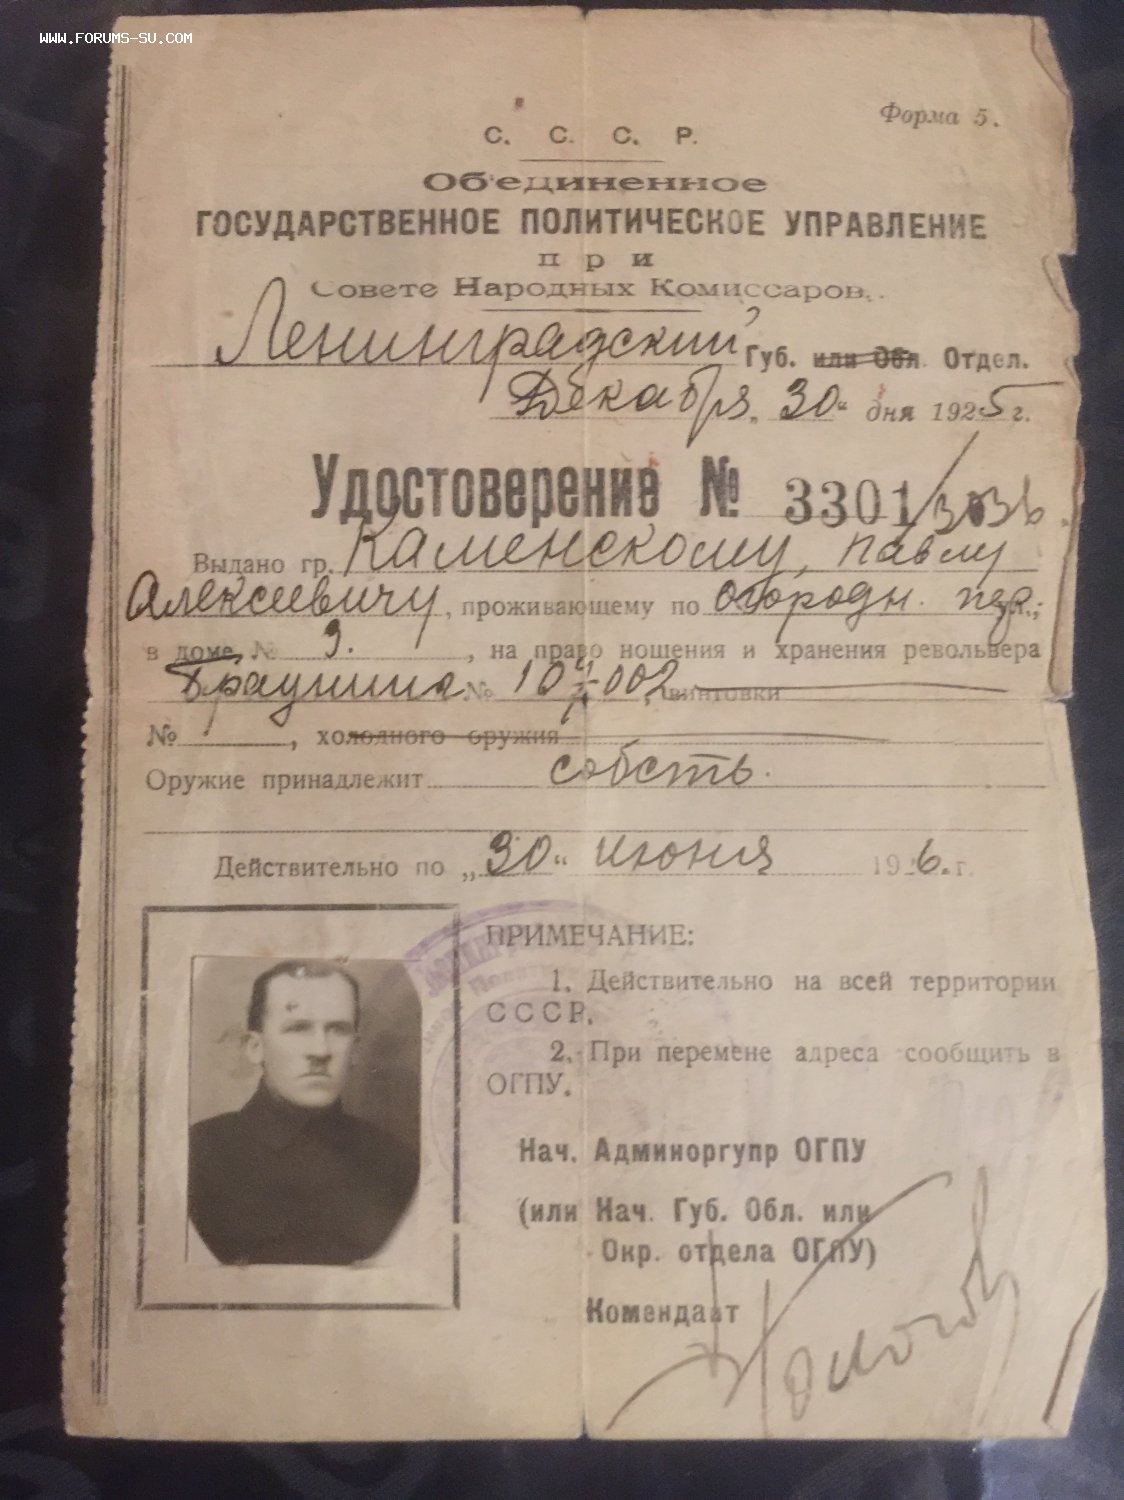 WWW.FORUMS-SU.COM
Форма 5.
С. С. С. Р.
Об'единенное
ГОСУДАРСТВЕННОЕ ПОЛИТИЧЕСКОЕ УПРАВЛЕНИЕ
при
Совете Народных Комиссаров.
Ленинградский Губ. или Обл. Отдел.
Декабря „30“ дня 1925 г.
Удостоверение № 3301/3036
Выдано гр. Каменскому, Павлу
Алексеевичу, проживающему по Огородн. пер.,
в доме № 9., на право ношения и хранения револьвера
Браунинга № 10 002, винтовки
№ , холодного оружия
Оружие принадлежит собств.
Действительно по „30“ июня 1926. г.
ПРИМЕЧАНИЕ:
1. Действительно на всей территории
СССР.
2. При перемене адреса сообщить в
ОГПУ.
Нач. Адморгупр ОГПУ
(или Нач. Губ. Обл. или
Окр. отдела ОГПУ)
Комендант